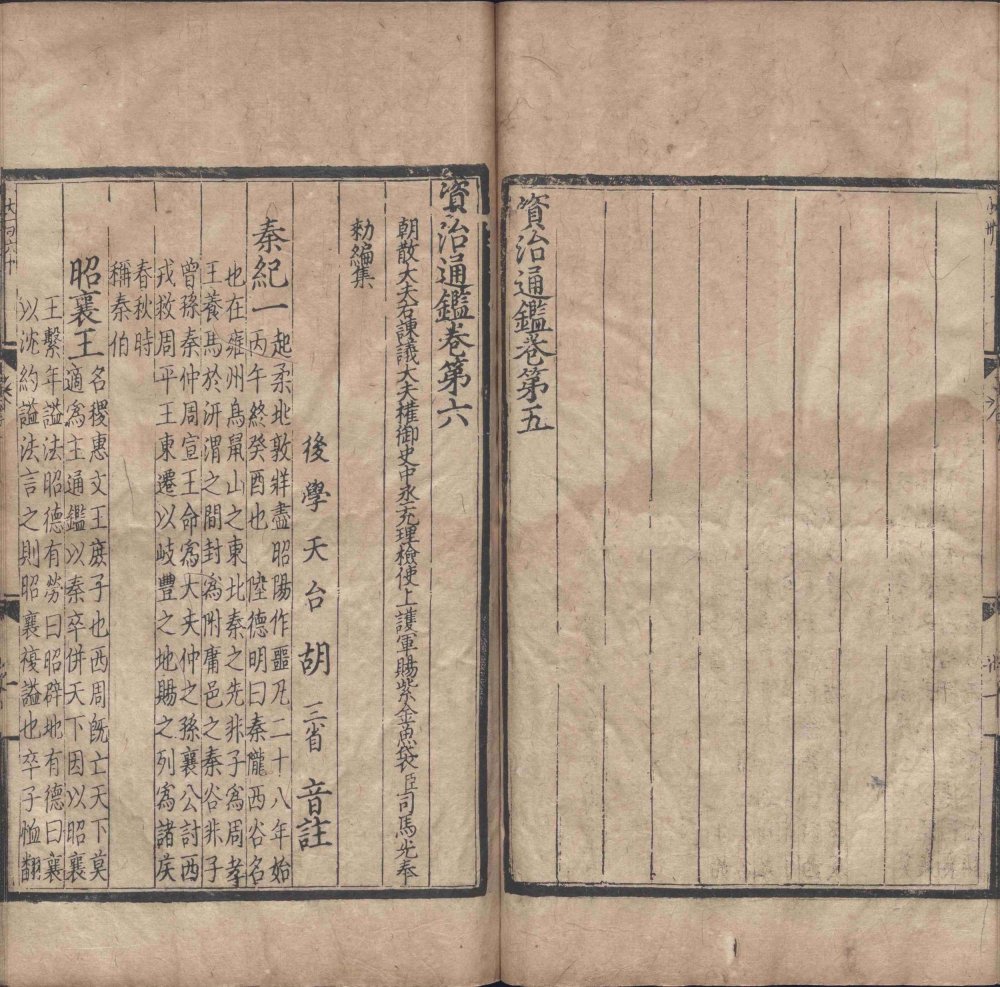 資治通鑑卷第五
資治通鑑卷第六
朝散大夫右諫議大夫權御史中丞充理檢使上護軍賜紫金魚袋臣司馬光奉
勑編集
後學天台胡三省音註
秦紀一起柔兆敦牂盡昭陽作噩凡二十八年始
丙午終癸酉也 陸德明曰秦隴西谷名
也在雍州鳥鼠山之東北秦之先非子爲周孝
王養馬於汧渭之間封爲附庸邑之秦谷非子
曾孫秦仲周宣王命爲大夫仲之孫襄公討西
戎救周平王東遷以岐豐之地賜之列爲諸侯
春秋時
稱秦伯
昭襄王名稷惠文王庶子也西周旣亡天下莫
適爲主通鑑以秦卒併天下因以昭襄
王繫年謚法昭德有勞曰昭辟地有德曰襄
以沈約謚法言之則昭襄複謚也卒子恤翻